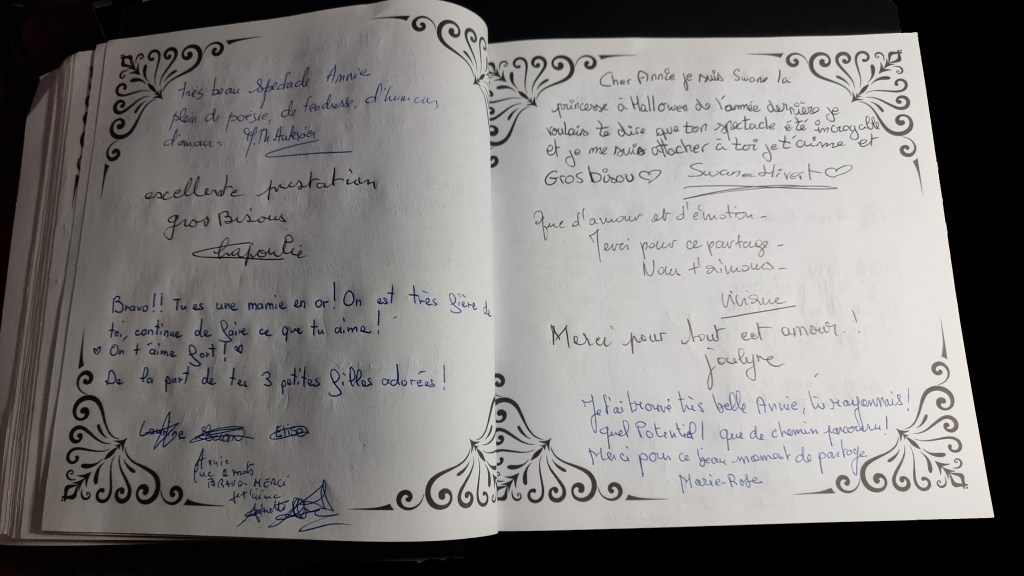 très beau spectacle Annie
plein de poésie, de tendresse, d'humour
d'amour.
excellente prestation
gros Bisous
Chapoulie
Bravo!! Tu es une mamie en or! On est très fière de
toi, continue de faire ce que tu aime!
♡ On t'aime fort! ♡
De la part de tes 3 petites filles adorées!
Annie
2 mots
BRAVO - MERCI
Cher Annie je suis Swane la
princesse à Hallowen de l'année dernière je
voulais te dire que ton spectacle été incroyable
et je me suis attacher à toi je t'aime et
Gros bisou ♡ Swane Hivert ♡
Que d'amour et d'émotion -
Merci pour ce partage -
Nous t'aimons -
Merci pour tout cet amour.!
Joelyne
Je t'ai trouvé très belle Annie, tu rayonnais!
quel Potentiel! que de chemin parcouru!
Merci pour ce beau moment de partage
Marie-Rose